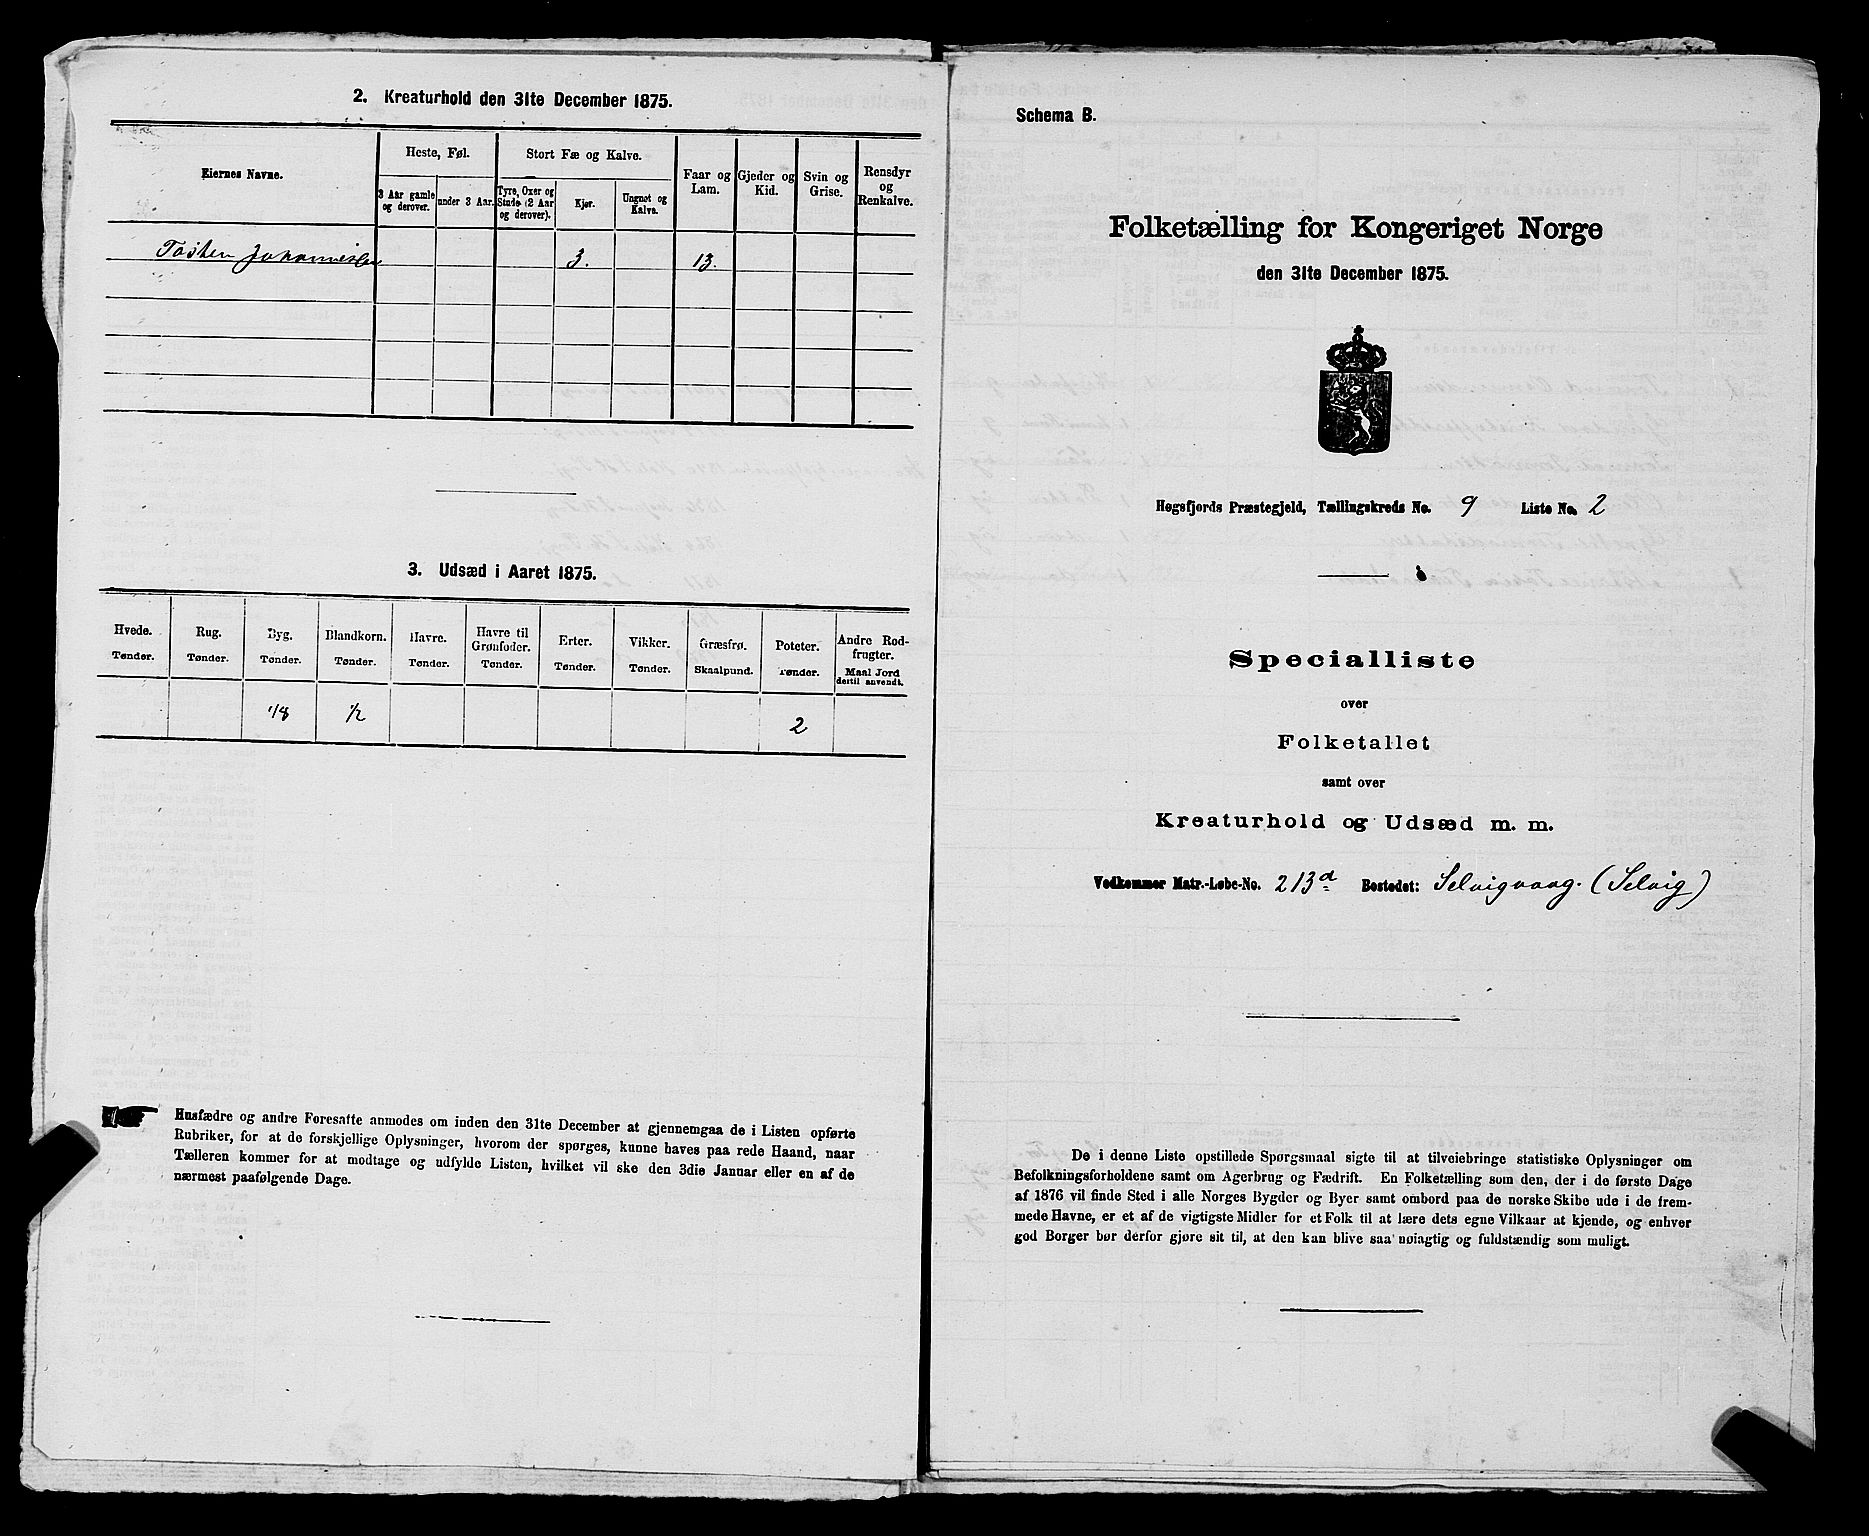 2. Kreaturhold den 31te December 1875.
Eiernes Navne.
Heste, Føl.
Stort Fæ og Kalve.
Faar og Lam.
Gjeder og Kid.
Svin og Grise.
Rensdyr og Renkalve.
3 Aar gamle og derover.
under 3 Aar.
Tyre, Oxer og Stude (2 Aar og derover).
Kjør.
Ungnøt og Kalve.
Tosten Johannesen 3. 13.
3. Udsæd i Aaret 1875.
Hvede. Rug. Byg. Blandkorn. Havre. Havre til Grønfoder. Erter. Vikker. Græsfrø. Poteter. Andre Rodfrugter.
Tønder. Tønder. Tønder. Tønder. Tønder. Tønder. Tønder. Tønder. Skaalpund. Tønder. Maal Jord dertil anvendt.
1/8 1/2 2
Husfædre og andre Foresatte anmodes om inden den 31te December at gjennemgaa de i Listen opførte
Rubriker, for at de forskjellige Oplysninger, hvorom der spørges, kunne haves paa rede Haand, naar
Tælleren kommer for at modtage og udfylde Listen, hvilket vil ske den 3die Januar eller en af de
nærmest paafølgende Dage.
Schema B.
Folketælling for Kongeriget Norge
den 31te December 1875.
Høgsfjords Præstegjeld, Tællingskreds No. 9 Liste No. 2
Specialliste
over
Folketallet
samt over
Kreaturhold og Udsæd m. m.
Vedkommer Matr.-Løbe-No. 213d Bostedet: Selvigvaag. (Selvig)
De i denne Liste opstillede Spørgsmaal sigte til at tilveiebringe statistiske Oplysninger om
Befolkningsforholdene samt om Agerbrug og Fædrift. En Folketælling som den, der i de første Dage
af 1876 vil finde Sted i alle Norges Bygder og Byer samt ombord paa de norske Skibe ude i de frem-
mede Havne, er et af de vigtigste Midler for et Folk til at lære dets egne Vilkaar at kjende, og enhver
god Borger bør derfor gjøre sit til, at den kan blive saa nøiagtig og fuldstændig som muligt.